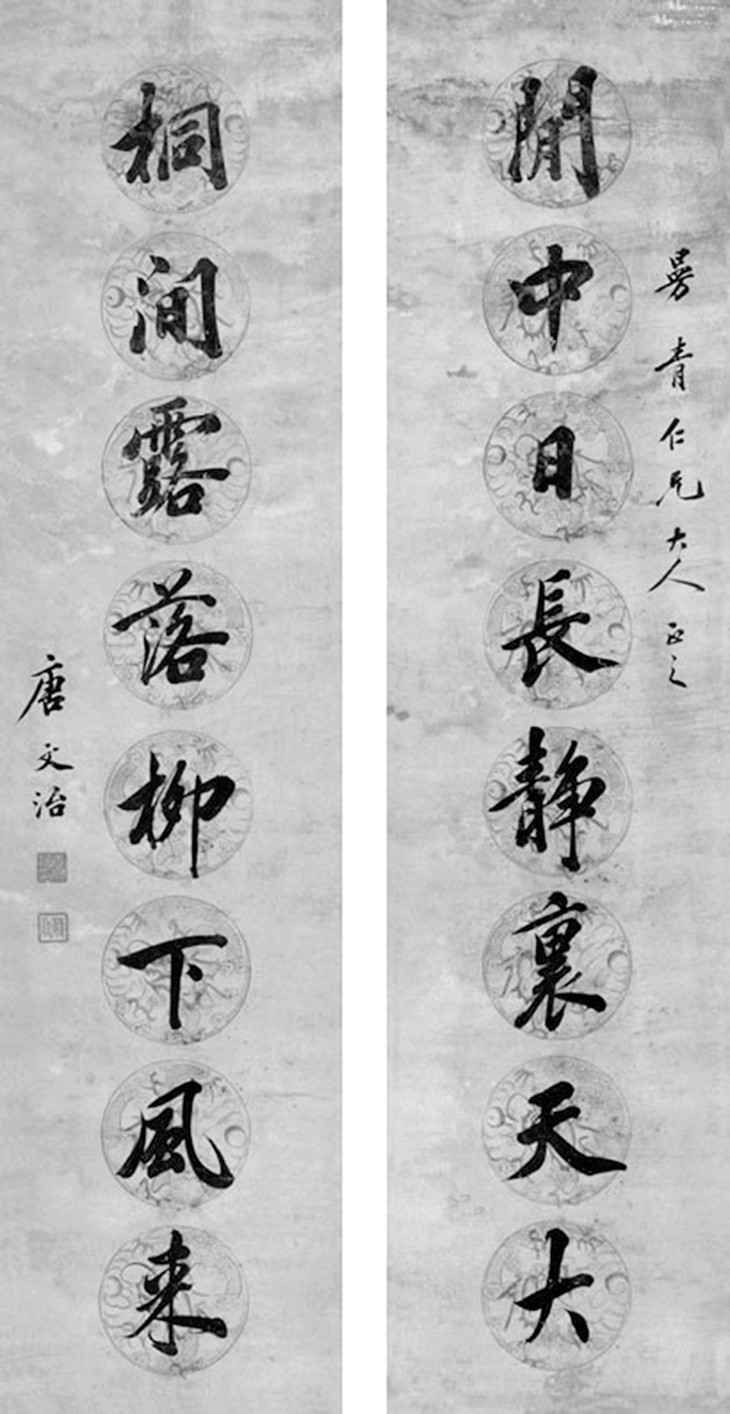 青仁兄大人正之
閒中日長静裏天大
桐間露落柳下風来
唐文治